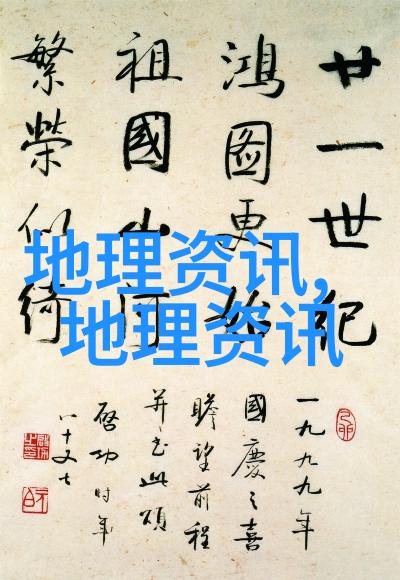 廿一世紀
鴻圖更始
祖國山河
繁榮似綺
一九九九年
國慶之喜
瞻望前程
并书此頌
啓功时年
八十又七
地理资讯,
地理资讯